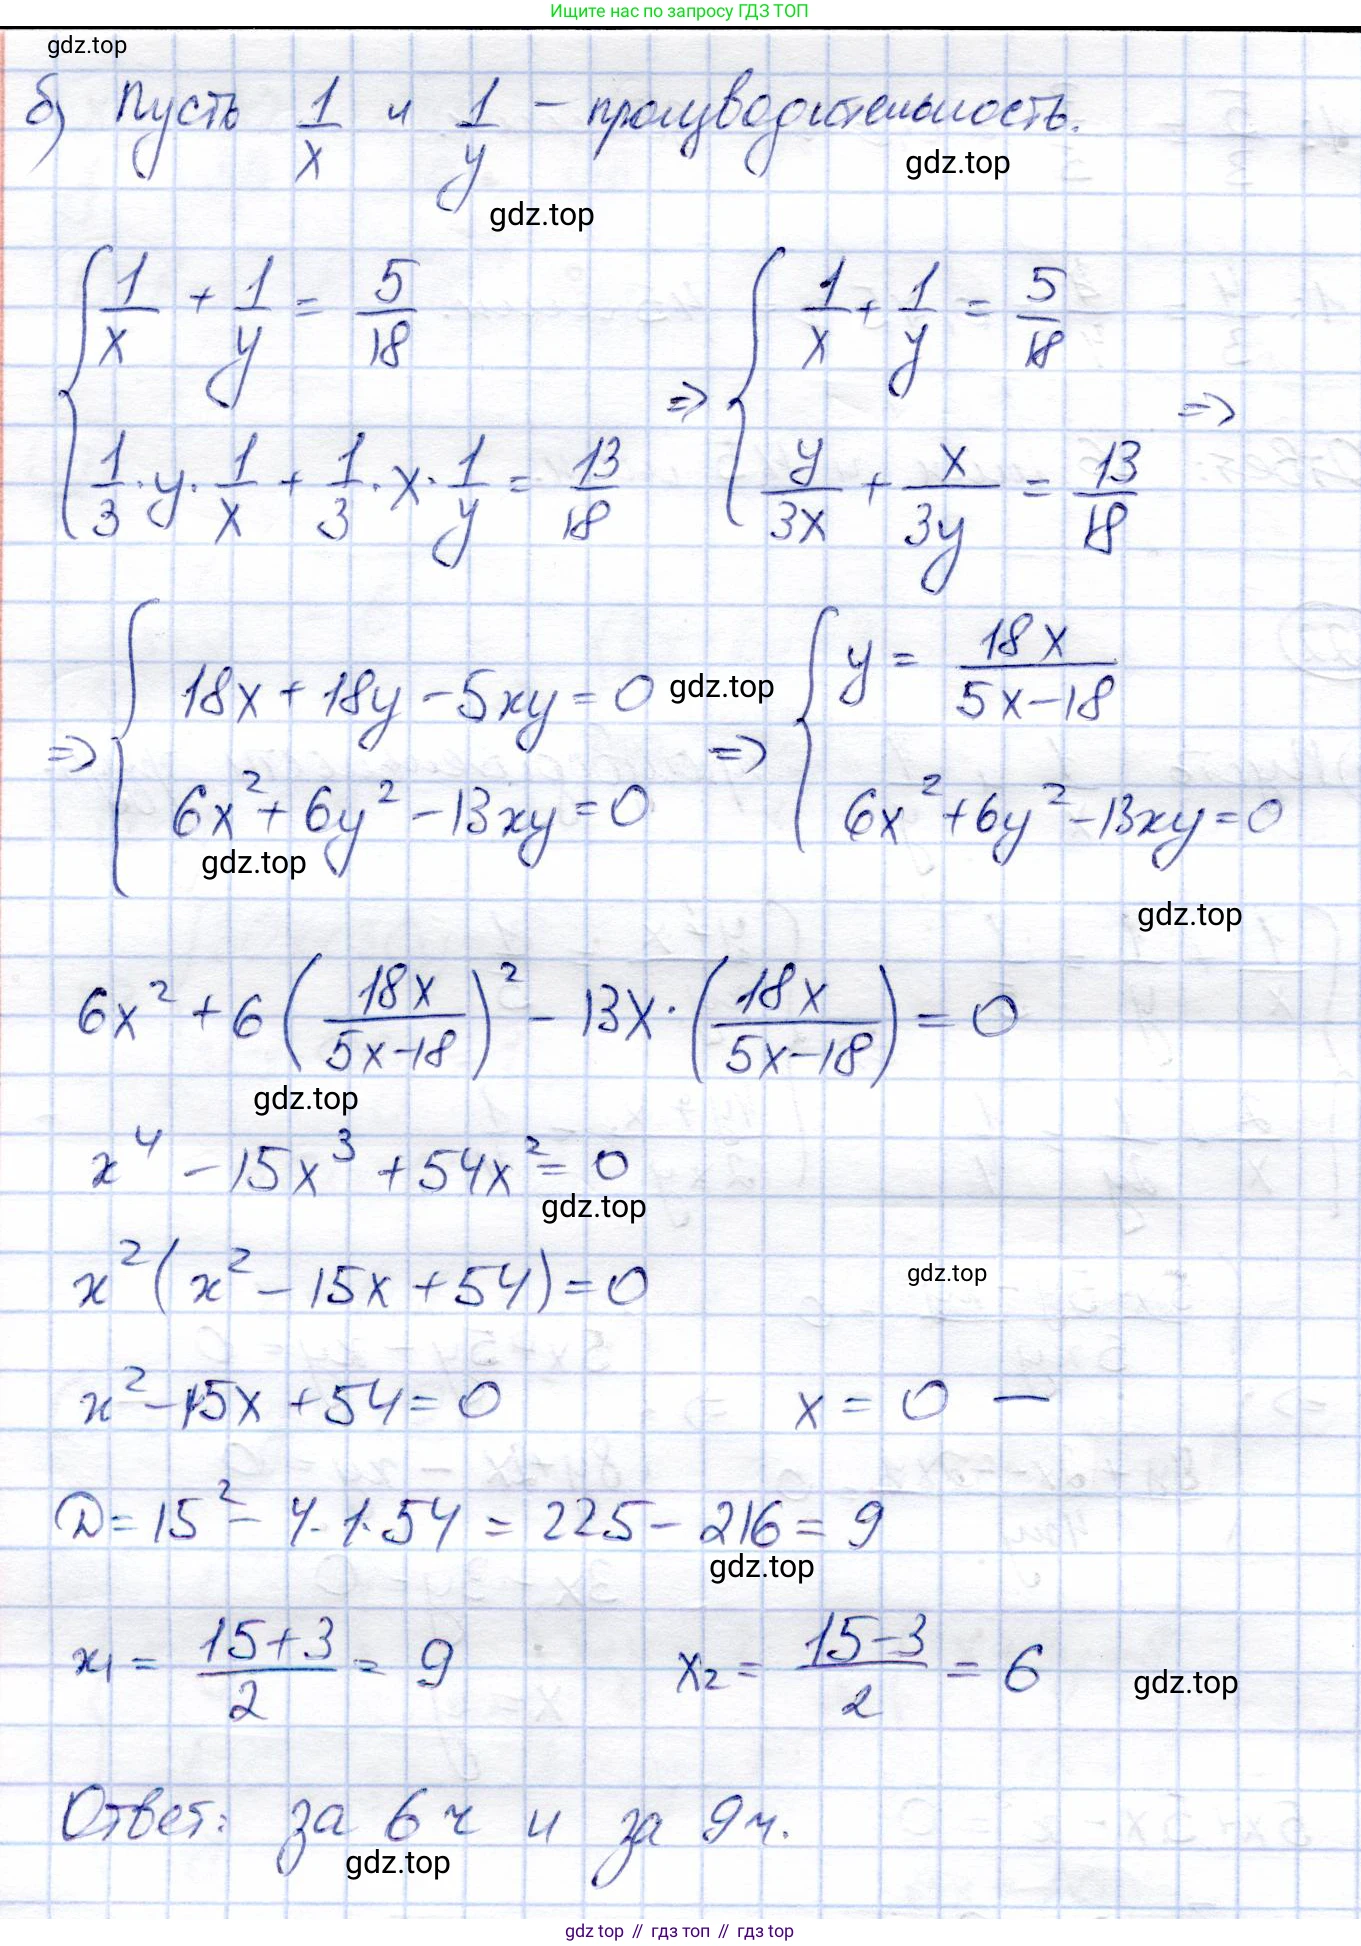 Ищите нас по запросу ГДЗ ТОП
gdz.top
б) Пусть 1/x и 1/y – производительность.
gdz.top
gdz.top
{ 1/x + 1/y = 5/18 ; 1/3 · y · 1/x + 1/3 · x · 1/y = 13/18 => { 1/x + 1/y = 5/18 ; y/3x + x/3y = 13/18 =>
=> { 18x + 18y – 5xy = 0 ; 6x² + 6y² – 13xy = 0 => { y = 18x/(5x–18) ; 6x² + 6y² – 13xy = 0
gdz.top
gdz.top
gdz.top
6x² + 6(18x/(5x–18))² – 13x · (18x/(5x–18)) = 0
gdz.top
x⁴ – 15x³ + 54x² = 0
gdz.top
x²(x² – 15x + 54) = 0
gdz.top
x² – 15x + 54 = 0 x = 0 —
D = 15² – 4 · 1 · 54 = 225 – 216 = 9
gdz.top
x₁ = (15+3)/2 = 9 x₂ = (15–3)/2 = 6
gdz.top
Ответ: за 6 ч и за 9 ч.
gdz.top
gdz top // гдз топ // гдз top